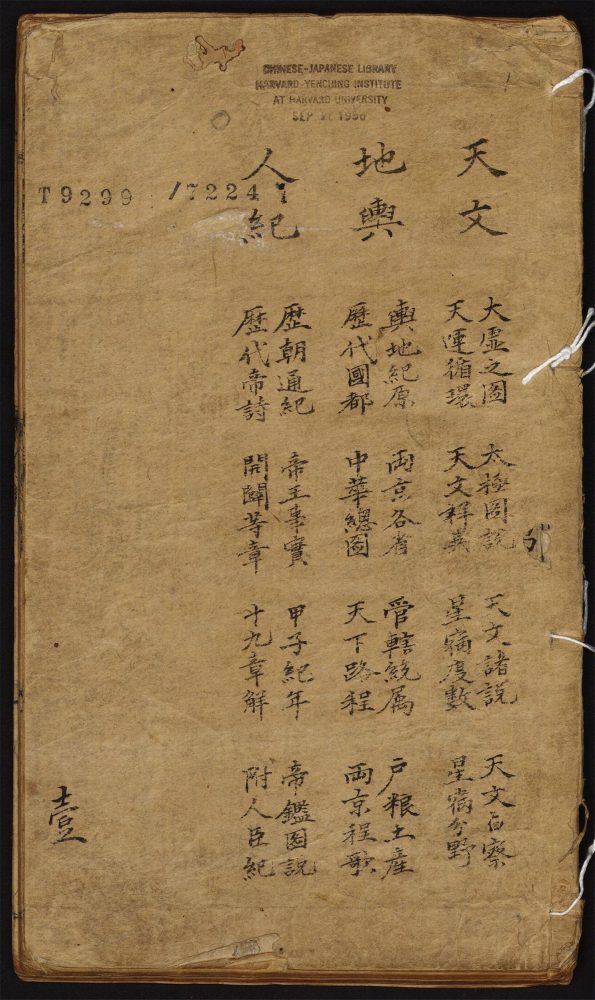 CHINESE-JAPANESE LIBRARY
HARVARD-YENCHING INSTITUTE
AT HARVARD UNIVERSITY
T9299 /7224
天文
大虛之圖 太極圖說 天文諸說 天文占察
天運循環 天文祥異 星宿度數 星宿分野
地輿
輿地紀原 両京各省 管轄統属 户粮土産
歷代國都 中華總圖 天下路程 両京程歌
人紀
歷朝通紀 帝王事實 甲子紀年 帝鑑圖說
歷代帝詩 開闢等章 十九章解 附人臣紀
壹